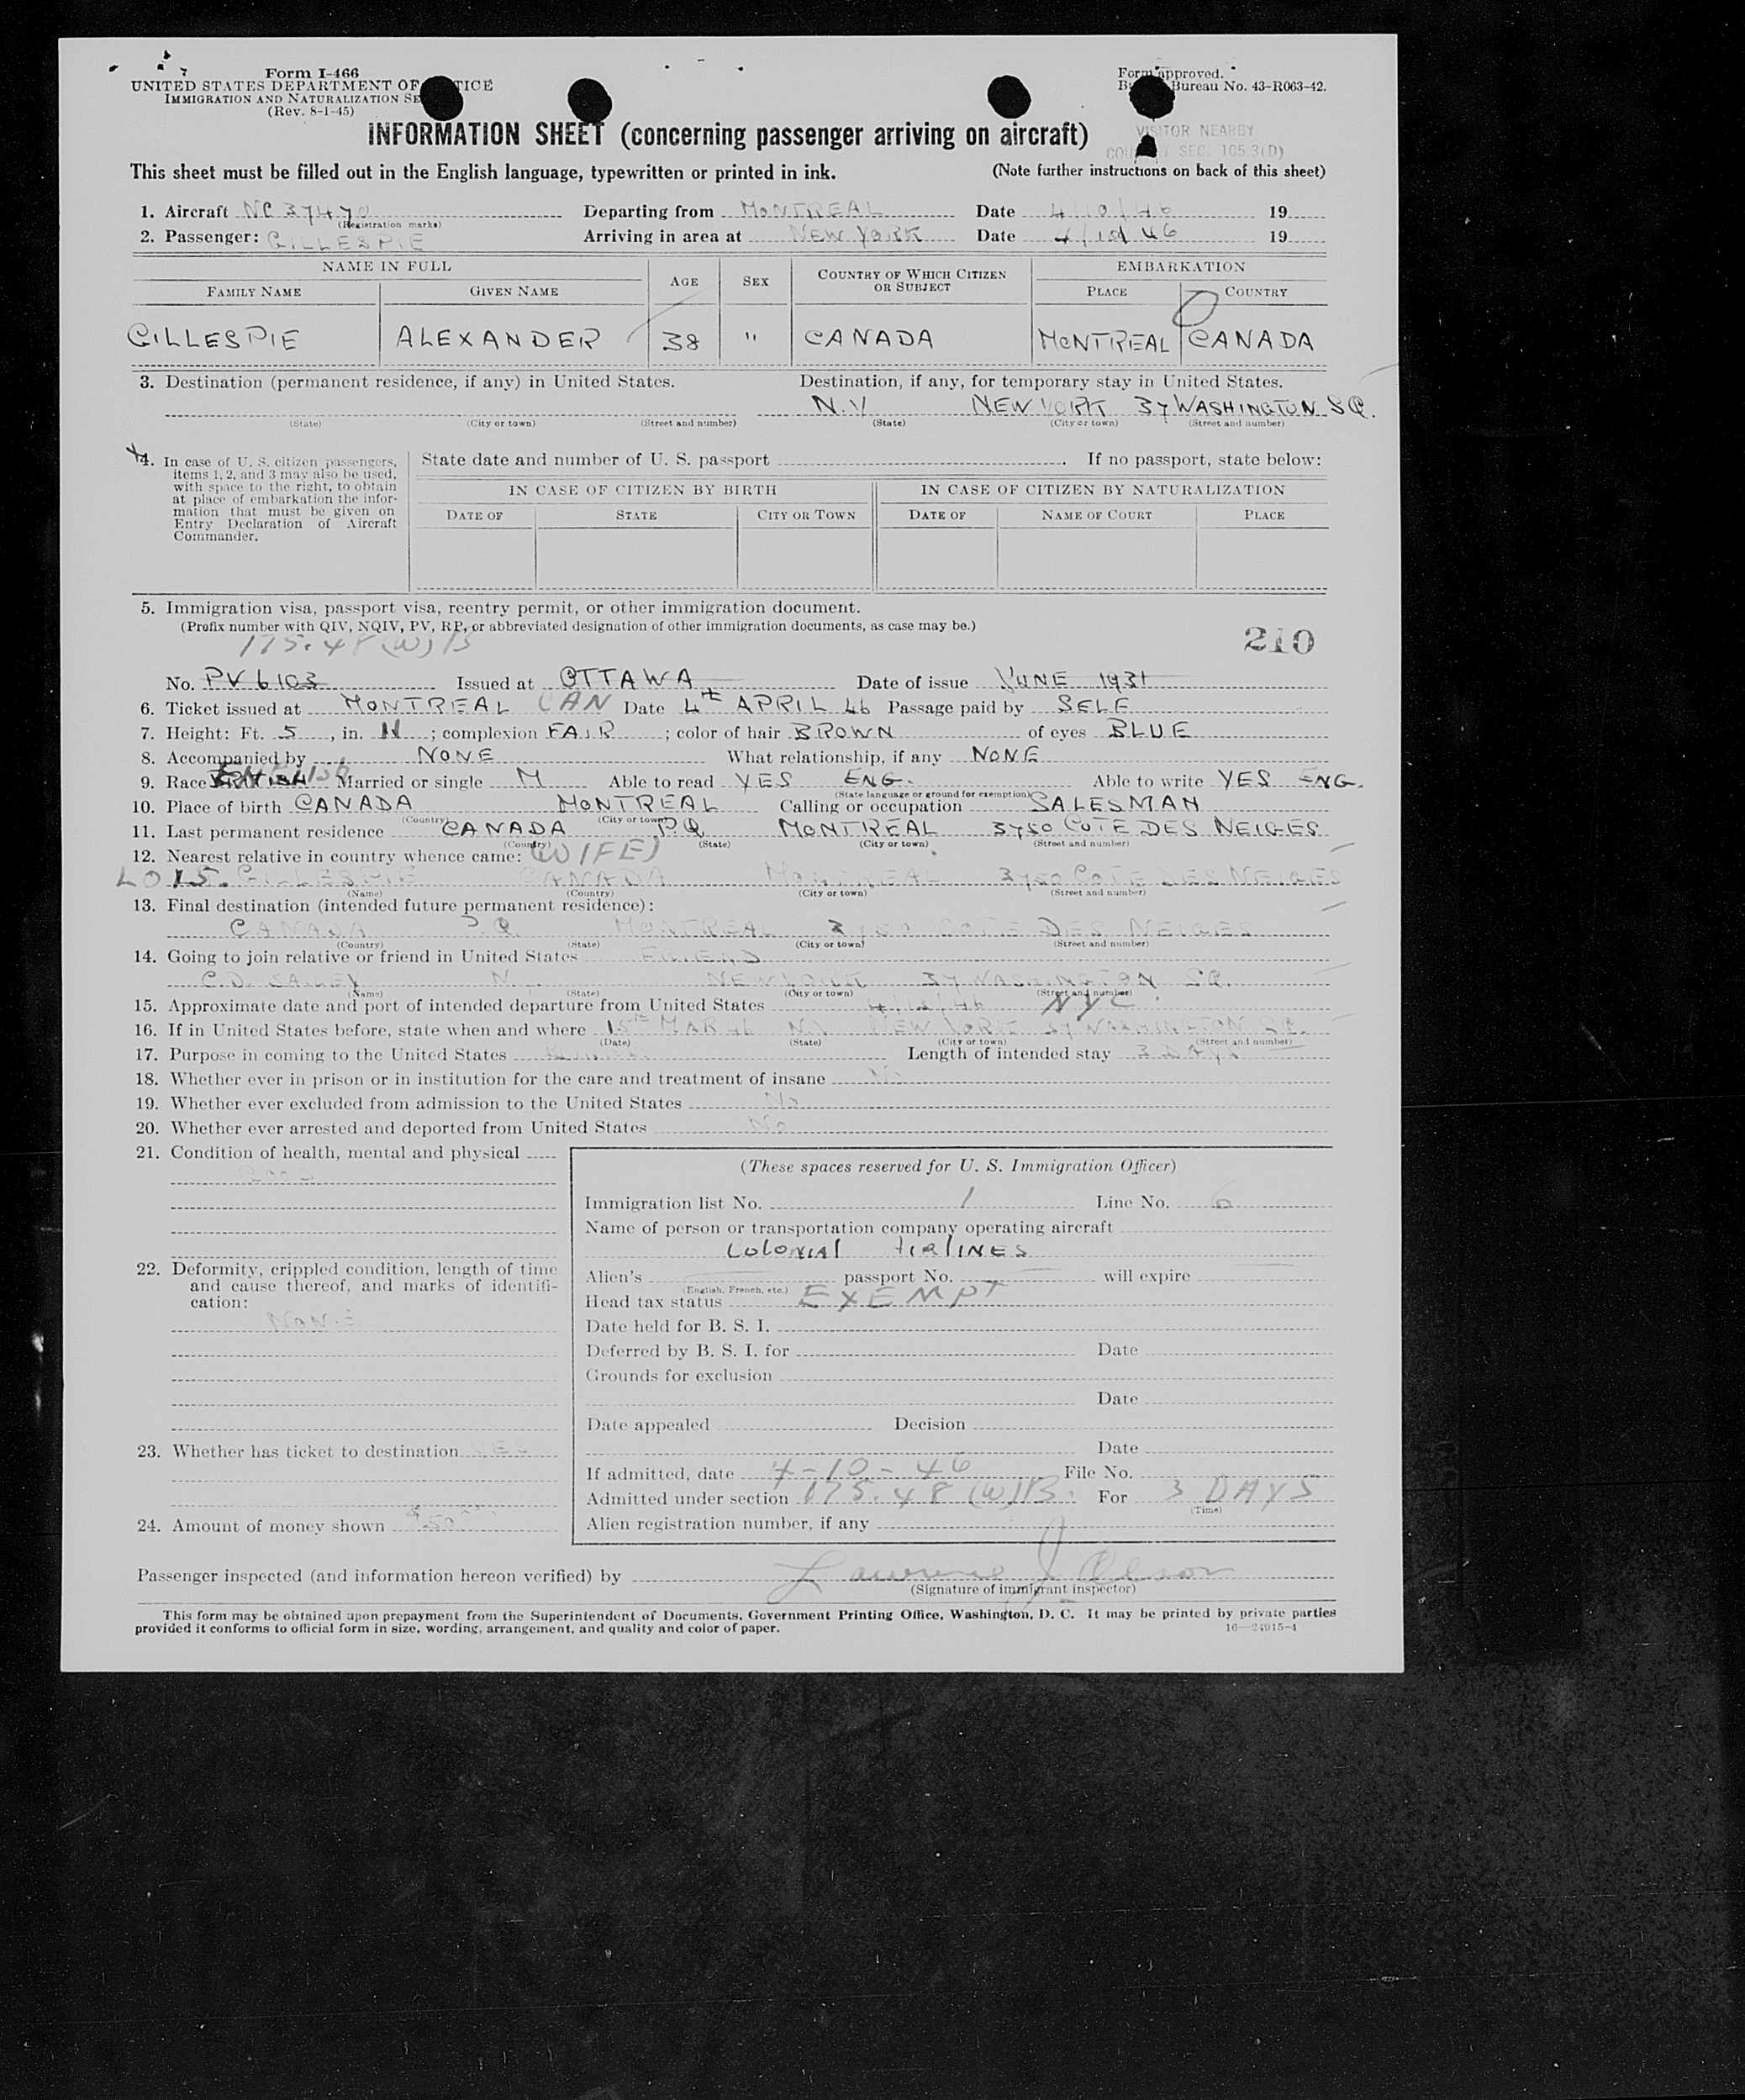 Form I-466
UNITED STATES DEPARTMENT OF
IMMIGRATION AND NATURALIZATION
(Rev. 8-1-45)
Form approved.
Bureau No. 43-R063-42.
INFORMATION SHEET (concerning passenger arriving on aircraft)
VISITOR NEARBY
SEC. 105.3(D)
This sheet must be filled out in the English language, typewritten or printed in ink. (Note further instructions on back of this sheet)
1. Aircraft NC 37470 Departing from MONTREAL Date 4/10/46 19
(Registration marks)
2. Passenger: GILLESPIE Arriving in area at NEW YORK Date 4/10/46 19
NAME IN FULL AGE SEX COUNTRY OF WHICH CITIZEN OR SUBJECT EMBARKATION
FAMILY NAME GIVEN NAME PLACE COUNTRY
GILLESPIE ALEXANDER 38 " CANADA MONTREAL CANADA
3. Destination (permanent residence, if any) in United States. Destination, if any, for temporary stay in United States.
N.Y NEW YORK 37 WASHINGTON SQ.
(State) (City or town) (Street and number) (State) (City or town) (Street and number)
4. In case of U. S. citizen passengers, items 1, 2, and 3 may also be used, with space to the right, to obtain at place of embarkation the information that must be given on Entry Declaration of Aircraft Commander.
State date and number of U. S. passport . If no passport, state below:
IN CASE OF CITIZEN BY BIRTH IN CASE OF CITIZEN BY NATURALIZATION
DATE OF STATE CITY OR TOWN DATE OF NAME OF COURT PLACE
5. Immigration visa, passport visa, reentry permit, or other immigration document.
(Prefix number with QIV, NQIV, PV, RP, or abbreviated designation of other immigration documents, as case may be.)
175.48 (W) B
210
No. PV 6103 Issued at OTTAWA Date of issue JUNE 1931
6. Ticket issued at MONTREAL CAN Date 4th APRIL 46 Passage paid by SELF
7. Height: Ft. 5, in. 11; complexion FAIR; color of hair BROWN of eyes BLUE
8. Accompanied by NONE What relationship, if any NONE
9. Race ENGLISH Married or single M Able to read YES ENG. Able to write YES ENG.
(State language or ground for exemption)
10. Place of birth CANADA MONTREAL Calling or occupation SALESMAN
(Country) (City or town)
11. Last permanent residence CANADA P.Q MONTREAL 3750 COTE DES NEIGES
(Country) (State) (City or town) (Street and number)
12. Nearest relative in country whence came: (WIFE)
LOIS. GILLESPIE CANADA MONTREAL 3750 COTE DES NEIGES
(Name) (Country) (City or town) (Street and number)
13. Final destination (intended future permanent residence):
CANADA P.Q. MONTREAL 3750 COTE DES NEIGES
(Country) (State) (City or town) (Street and number)
14. Going to join relative or friend in United States FRIEND
C.D. N. NEW YORK 37 WASHINGTON SQ.
(Name) (State) (City or town) (Street and number)
15. Approximate date and port of intended departure from United States 4/12/46 NYC.
16. If in United States before, state when and where 15th MAR 46 N.Y NEW YORK 37 WASHINGTON SQ.
(Date) (State) (City or town) (Street and number)
17. Purpose in coming to the United States Length of intended stay 3 DAYS
18. Whether ever in prison or in institution for the care and treatment of insane No
19. Whether ever excluded from admission to the United States No
20. Whether ever arrested and deported from United States No
21. Condition of health, mental and physical
GOOD
22. Deformity, crippled condition, length of time and cause thereof, and marks of identification:
NONE
23. Whether has ticket to destination YES
24. Amount of money shown $50
(These spaces reserved for U. S. Immigration Officer)
Immigration list No. 1 Line No. 6
Name of person or transportation company operating aircraft
COLONIAL AIRLINES
Alien's passport No. will expire
(English, French, etc.)
Head tax status EXEMPT
Date held for B. S. I.
Deferred by B. S. I. for Date
Grounds for exclusion
Date
Date appealed Decision
Date
If admitted, date 4-10-46 File No.
Admitted under section 175.48 (W) B. For 3 DAYS
(Time)
Alien registration number, if any
Passenger inspected (and information hereon verified) by Lawrence J. Olson
(Signature of immigrant inspector)
This form may be obtained upon prepayment from the Superintendent of Documents, Government Printing Office, Washington, D. C. It may be printed by private parties
provided it conforms to official form in size, wording, arrangement, and quality and color of paper. 16—24915-4